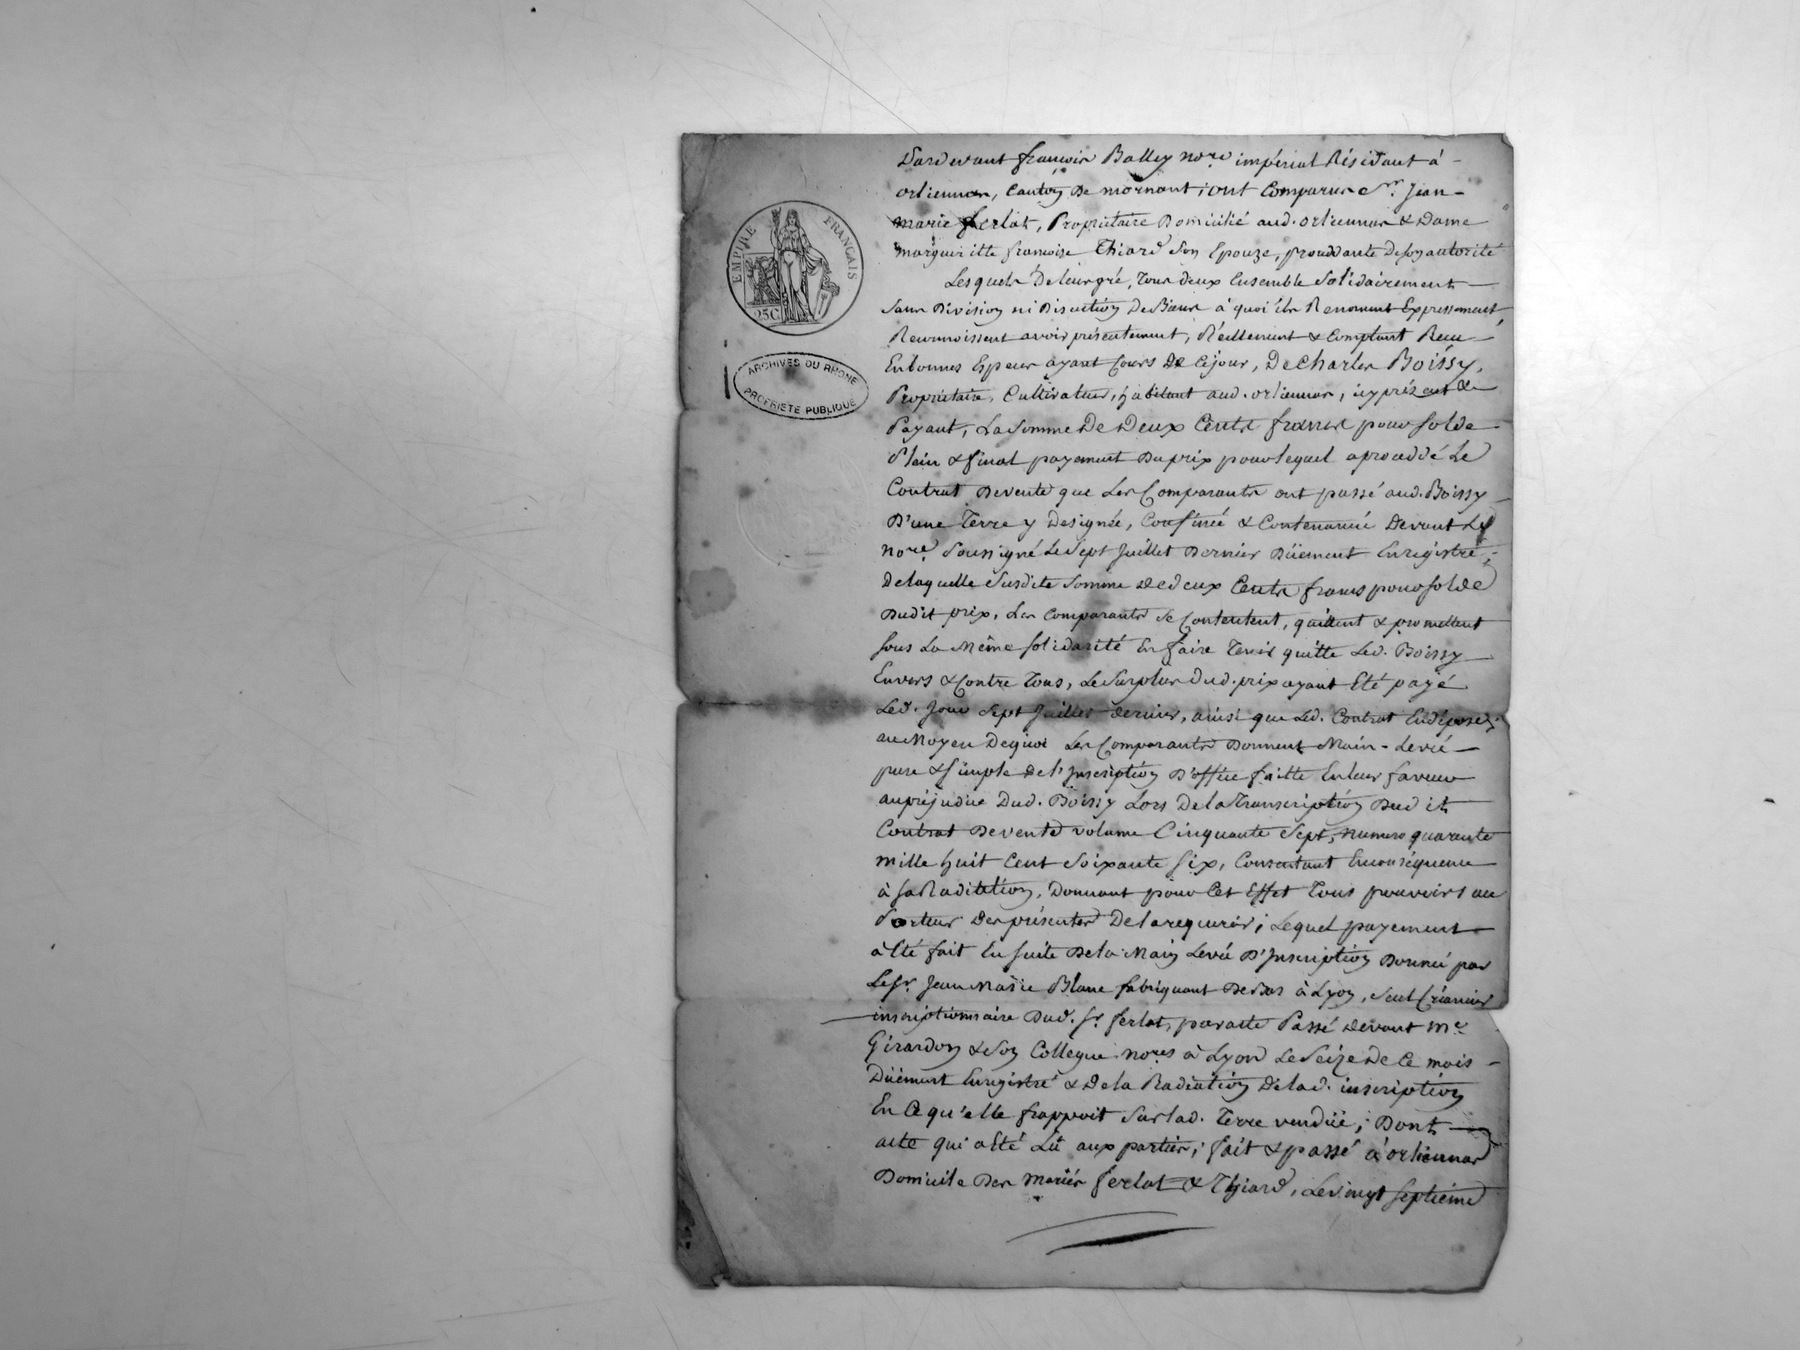 EMPIRE FRANÇAIS
25C
ARCHIVES DU RHONE
PROPRIETE PUBLIQUE
Pardevant françois Balley nore. impérial Résidant à
orliennas, Canton De mornant; ont Comparus Sr. Jean
marie ferlat, Propriétaire Domicilié aud. orliennas & Dame
margueritte françoise Thiard Son Epouze, procédante de son autorité
Lesquels De leur gré, tous deux Ensemble Solidairement
Sans Division ni Discution De Biens à quoi ils Renoncent Expressément,
Reconnoissent avoir présentement, Réellement & Comptant Recu
En bonnes Espèces ayant Cours De Cejour, De Charles Boissy,
Propriétaire, Cultivateur, habitant aud. orliennas, icy présent &
Payant, La Somme De Deux Cents francs pour Solde
Plein & final payement Du prix pour lequel a procédé Le
Contrat De vente que Les Comparants ont passé aud. Boissy
D'une Terre y Designée, Confinée & Contenancée Devant Le
nore. Soussigné Le Sept Juillet Dernier Düement Enregistré;
De laquelle Susdite Somme De deux Cents francs pour Solde
Dudit prix, Les Comparants Se Contentent, quittent & promettent
sous La Même Solidarité En faire Tenir quitte Led. Boissy
Envers & Contre Tous, Le Surplus Dud. prix ayant Eté payé
Led. Jour Sept Juillet dernier, ainsi que Led. Contrat En dépose;
au Moyen De quoi Les Comparants Donnent Main-Levée
pure & Simple de l'Inscription D'office faitte En leur faveur
au préjudice Dud. Boissy Lors De la Transcription Dudit
Contrat De vente volume Cinquante Sept, numero quarante
mille huit Cent Soixante Six, Consentant En conséquence
à Sa Radiation, Donnant pour Cet Effet Tous pouvoirs au
Porteur Des présentes De la requérir; Lequel payement
a Eté fait En Suite De la Main Levée D'Inscription Donnée par
Le Sr. Jean Marie Blanc fabriquant De Bas à Lyon, Seul Créancier
inscriptionnaire Dud. Sr. ferlat, par acte Passé devant Me.
Girardon & Son Collegue nores à Lyon Le Seize De Ce mois
Düement Enregistré & De la Radiation De lad. inscription
En Ce qu'elle frappoit Sur lad. Terre vendüe; Dont
acte qui a Eté Lû aux parties; fait & passé à orliennas
Domicile Des mariés ferlat & Thiard, Le vingt Septième